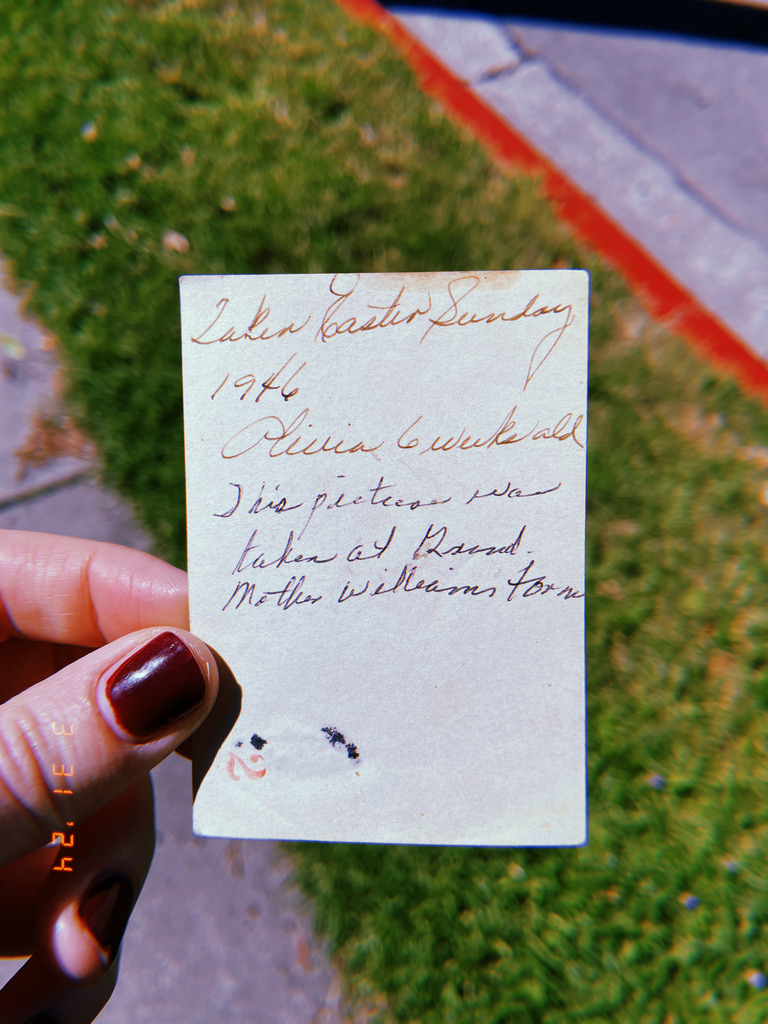 Taken Easter Sunday
1946
Olivia 6 weeks old
This picture was
taken at Grand.
Mother Williams Farm
2
3 31 '24